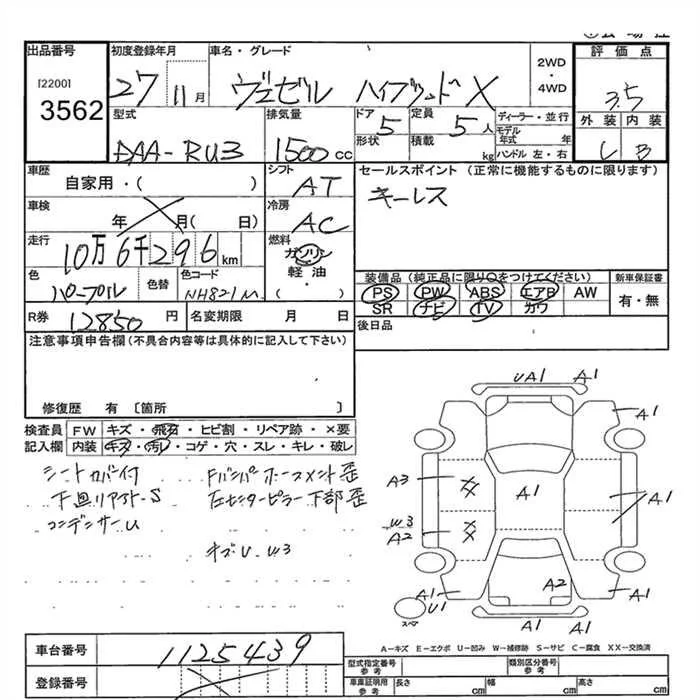 出品番号 初度登録年月 車名・グレード 2WD ・ 4WD 評価点
[2200]
3562
27 11月 ヴェゼル ハイブリッド X 3.5
型式 排気量 ドア 定員 ディーラー・並行 外装 内装
5 5人 モデル年式 年
DAA-RU3 1500cc 形状 積載 kg ハンドル 左・右 C B
車歴 シフト セールスポイント (正常に機能するものに限ります)
自家用・( ) AT キーレス
車検 年 月( 日) 冷房 AC
走行 10万6千296km 燃料 ガソリン
軽油
( )
色 パープル 色替 色コード NH821M
装備品 (純正品に限り○をつけてください) 新車保証書
PS PW ABS エアB AW 有・無
SR ナビ TV カワ
R券 12850円 名変期限 月 日 後日品
注意事項申告欄 (不具合内容等は具体的に記入して下さい)
修復歴 有 〔箇所 〕
検査員記入欄 FW キズ・飛石・ヒビ割・リペア跡・×要
内装 キズ・汚れ・コゲ・穴・スレ・キレ・破レ
シートカバー付 Fバンパーホースメント歪
下回りサビ-S 左センターピラー下部歪
コンデンサーU
キズU W3
UA1 A1
A1
A3 A1 A1
W3
A2
A2
A1 U1 A1
スペア
A1 A1
A-キズ E-エクボ U-凹み W-補修跡 S-サビ C-腐食 XX-交換済
車台番号 1125439
登録番号
型式指定番号 参考 類別区分番号 参考
車庫証明用 参考 長さ cm 幅 cm 高さ cm